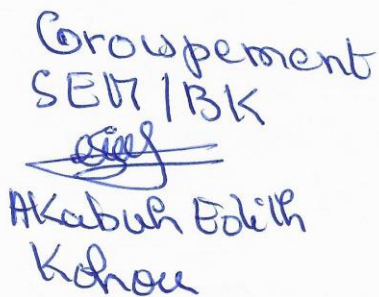 Groupement
SEM/BK
Akabuh Edith
Kohou